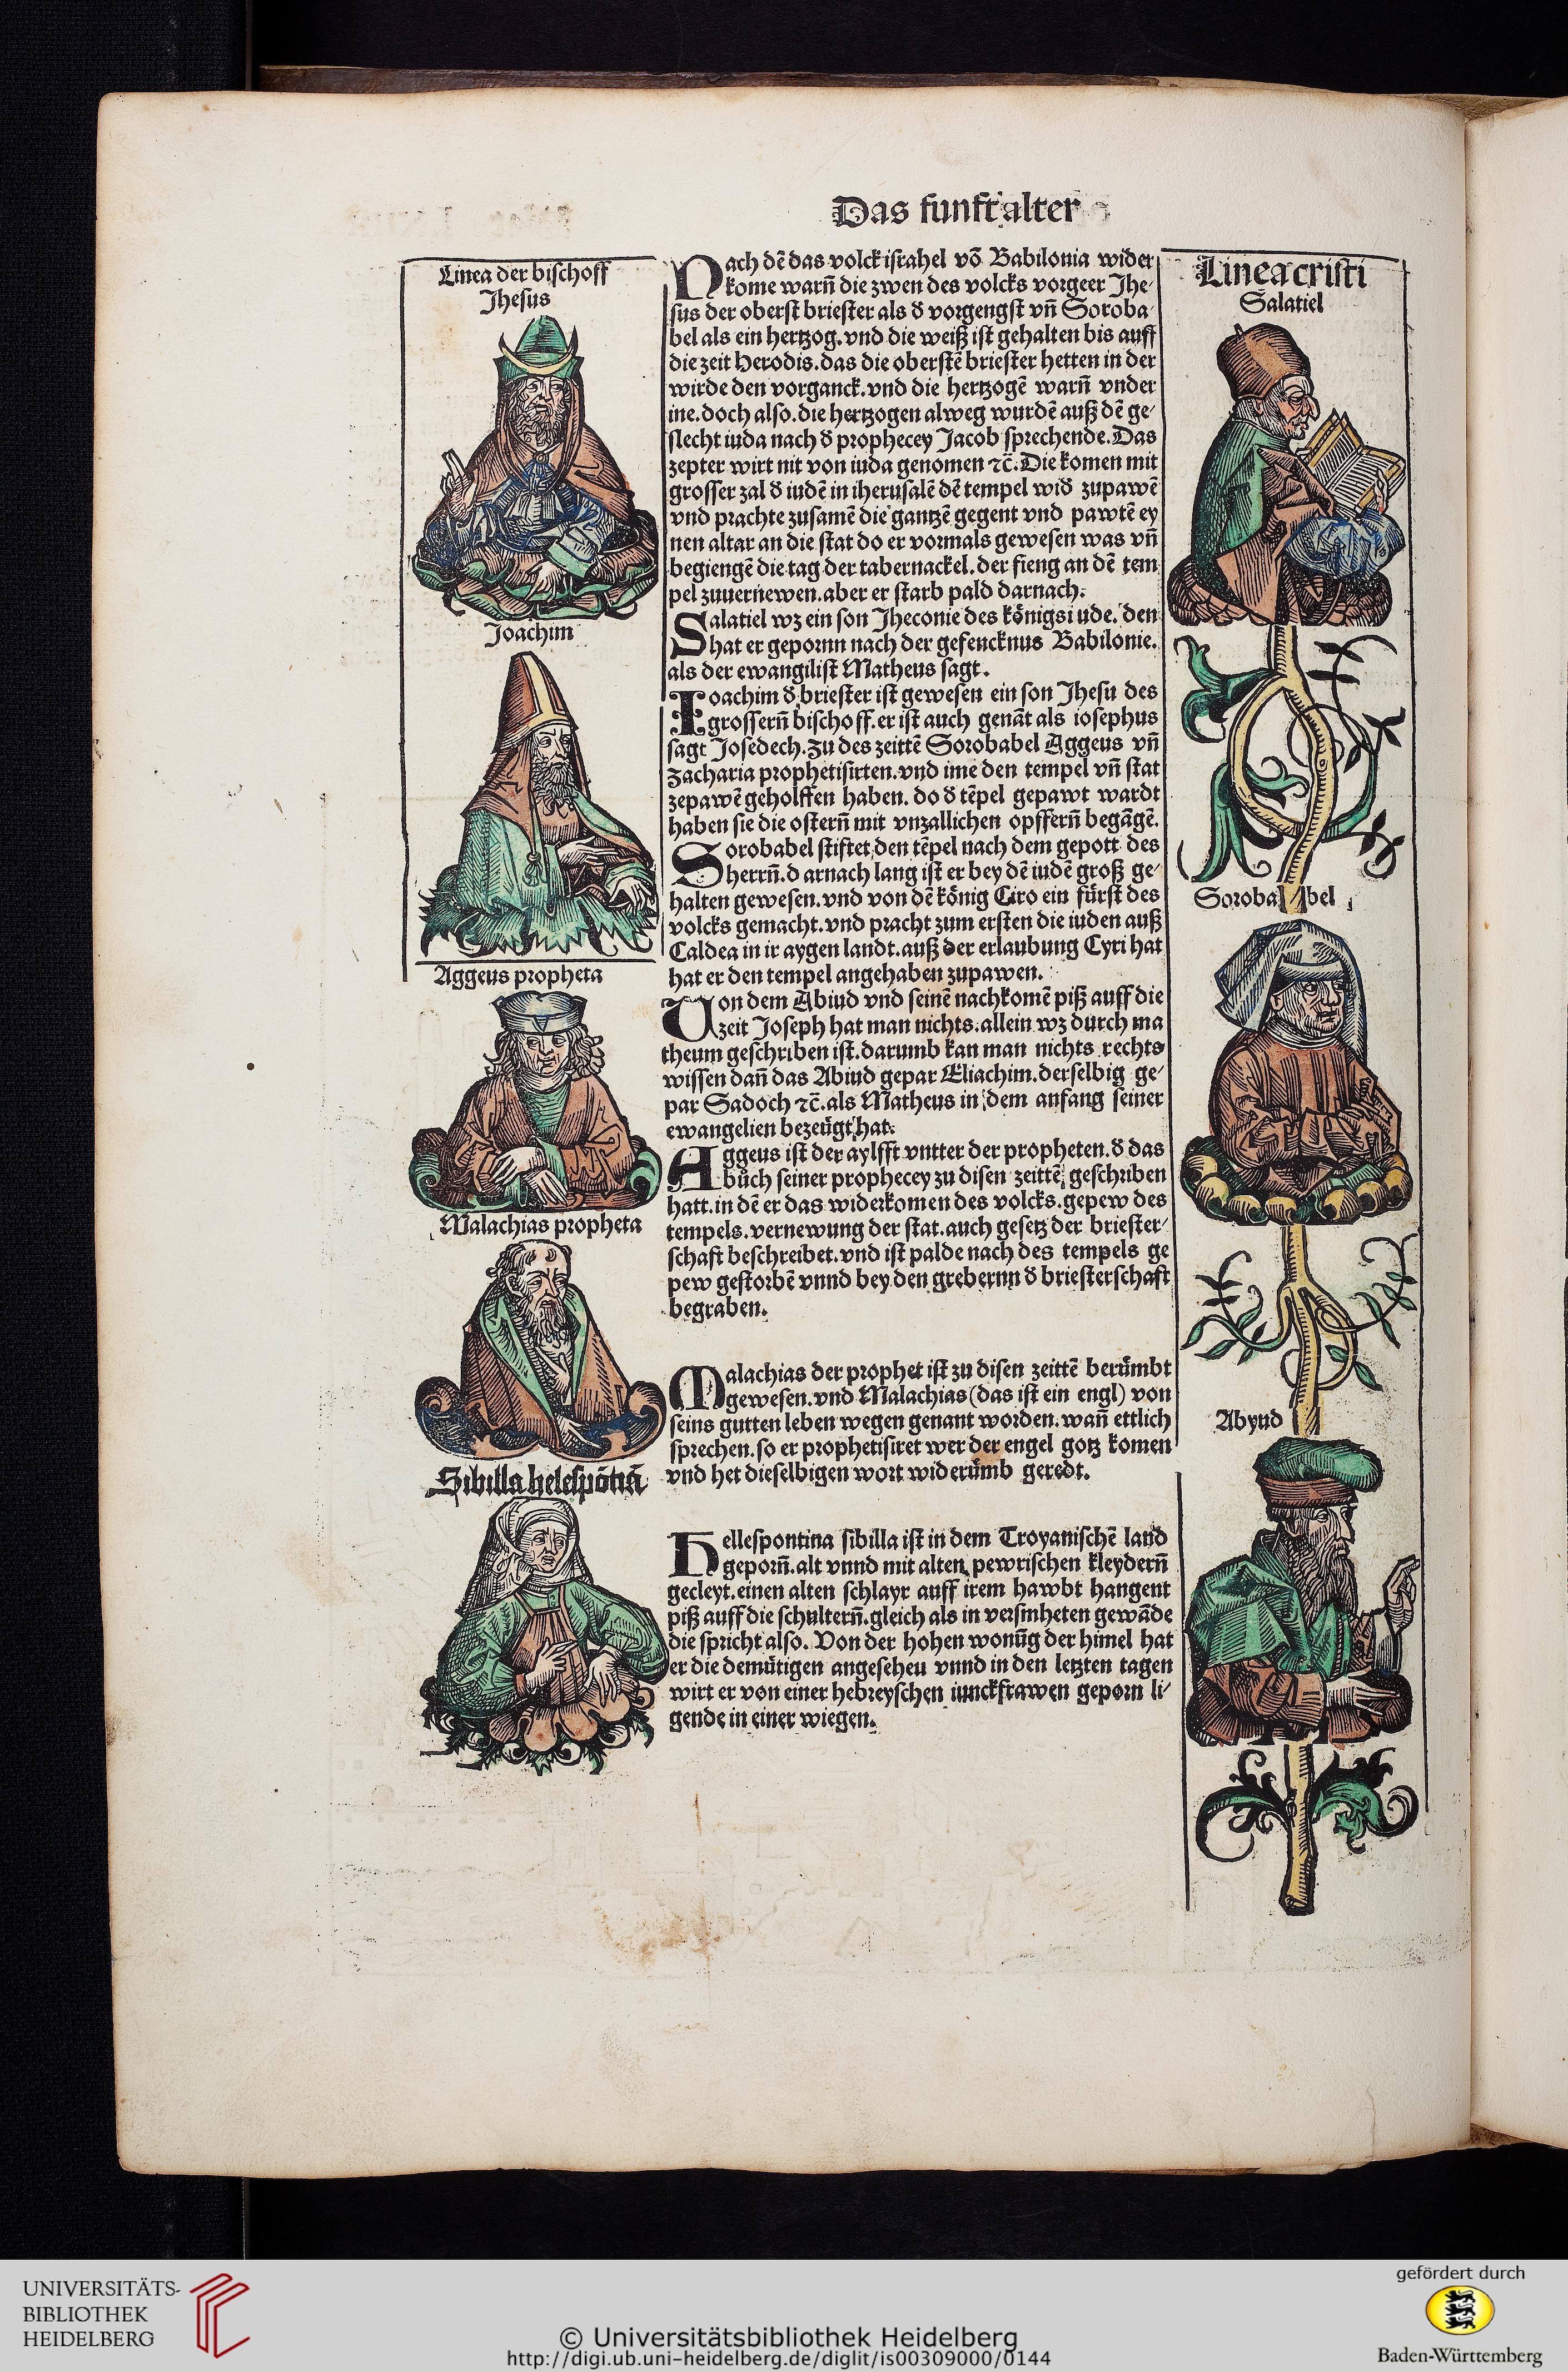 Das funft alter
Linea der bischoff
Jhesus
Joachim
Aggeus propheta
Malachias propheta
Sibilla helespōtiā
Nach dē das volck israhel vō Babilonia wider
kome warñ die zwen des volcks vorgeer Jhe-
sus der oberst briester als d vorgengst vñ Soroba-
bel als ein hertzog. vnd die weiß ist gehalten bis auff
die zeit Herodis. das die oberstē briester hetten in der
wirde den vorganck. vnd die hertzogē warñ vnder
ine. doch also. die hertzogen alweg wurdē auß dē ge-
slecht iuda nach d prophecey Jacob sprechende. Das
zepter wirt nit von iuda genomen ⁊c̄. Die komen mit
grosser zal d iudē in iherusalē dē tempel wid zupawē
vnd prachte zusamē die gantzē gegent vnd pawtē ey
nen altar an die stat do er vormals gewesen was vñ
begiengē die tag der tabernackel. der fieng an dē tem
pel zuuernewen. aber er starb pald darnach.
Salatiel wz ein son Jheconie des königs iude. den
hat er gepornn nach der gefencknus Babilonie.
als der ewangilist Matheus sagt.
Joachim d briester ist gewesen ein son Jhesu des
grossern̄ bischoff. er ist auch genāt als iosephus
sagt Josedech. Zu des zeittē Sorobabel Aggeus vñ
Zacharia prophetisirten. vnd ime den tempel vñ stat
zepawē geholffen haben. do d tēpel gepawt wardt
haben sie die ostern̄ mit vnzallichen opffern̄ begāgē.
Sorobabel stiftet den tēpel nach dem gepott des
herrn̄. d arnach lang ist er bey dē iudē groß ge-
halten gewesen. vnd von dē könig Ciro ein fürst des
volcks gemacht. vnd pracht zum ersten die iuden auß
Caldea in ir aygen landt. auß der erlaubung Cyri hat
hat er den tempel angehaben zupawen.
Von dem Abiud vnd seinē nachkomē piß auff die
zeit Joseph hat man nichts. allein wz durch ma
theum geschriben ist. darumb kan man nichts rechts
wissen dañ das Abiud gepar Eliachim. derselbig ge-
par Sadoch ⁊c̄. als Matheus in dem anfang seiner
ewangelien bezeügt hat.
Aggeus ist der aylfft vntter der propheten. d das
bůch seiner prophecey zu disen zeittē geschriben
hatt. in dē er das widerkomen des volcks. gepew des
tempels. vernewung der stat. auch gesetz der briester-
schaft beschreibet. vnd ist palde nach des tempels ge
pew gestorbē vnnd bey den grebernn d briesterschaft
begraben.
Malachias der prophet ist zu disen zeittē berümbt
gewesen. vnd Malachias (das ist ein engl) von
seins gutten leben wegen genant worden. wañ ettlich
sprechen. so er prophetisiret wer der engel gotz komen
vnd het dieselbigen wort widerümb geredt.
Hellespontina sibilla ist in dem Troyanischē land
geporn̄. alt vnnd mit alten pewrischen kleydern̄
gecleyt. einen alten schlayr auff irem hawbt hangent
piß auff die schultern̄. gleich als in versmheten gewāde
die spricht also. Von der hohen wonūg der himel hat
er die demütigen angesehen vnnd in den letzten tagen
wirt er von einer hebreyschen iunckfrawen geporn li-
gende in einer wiegen.
Linea cristi
Salatiel
Sorobabel
Abyud
UNIVERSITÄTS-
BIBLIOTHEK
HEIDELBERG
© Universitätsbibliothek Heidelberg
http://digi.ub.uni-heidelberg.de/diglit/is00309000/0144
gefördert durch
Baden-Württemberg